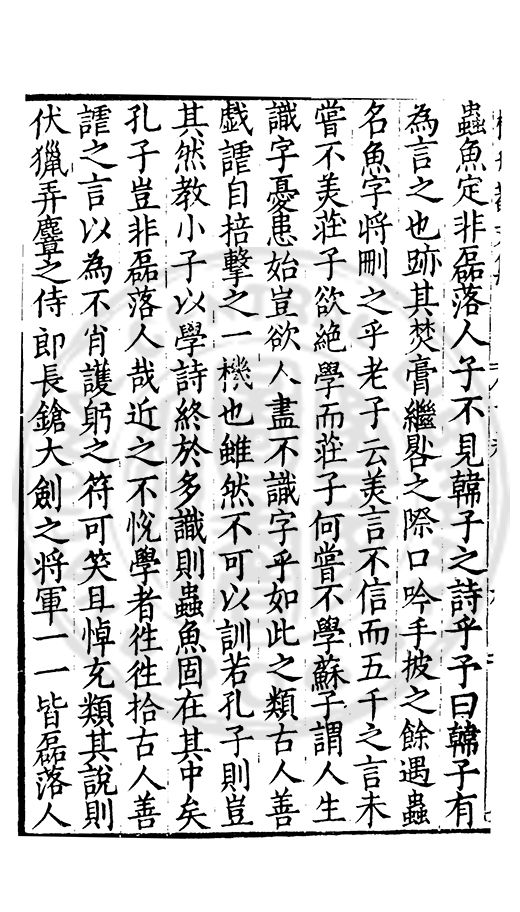 蟲魚定非磊落人子不見韓子之詩乎予曰韓子有
為言之也跡其焚膏繼晷之際口吟手披之餘遇蟲
名魚字將刪之乎老子云美言不信而五千之言未
嘗不美莊子欲絕學而莊子何嘗不學蘇子謂人生
識字憂患始豈欲人盡不識字乎如此之類古人善
戲謔自掊擊之一機也雖然不可以訓若孔子則豈
其然教小子以學詩終於多識則蟲魚固在其中矣
孔子豈非磊落人哉近之不悅學者徃徃拾古人善
謔之言以為不肖護躬之符可笑且悼充類其說則
伏獵弄麞之侍郎長鎗大劍之將軍一一皆磊落人